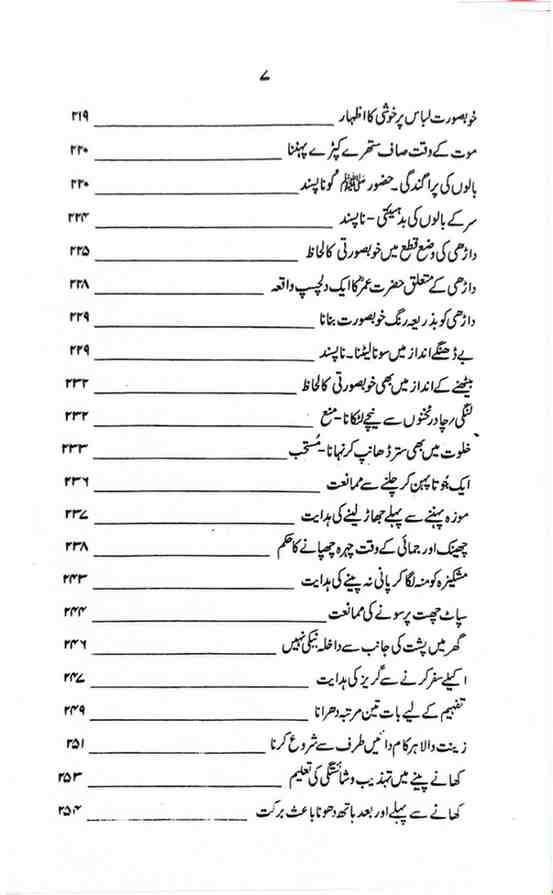 ۷
خوبصورت لباس پر خوشی کا اظہار ۲۱۹
موت کے وقت صاف ستھرے کپڑے پہننا ۲۲۰
بالوں کی پراگندگی۔ حضور ﷺ کو ناپسند ۲۲۰
سر کے بالوں کی بدہیئتی - ناپسند ۲۲۴
داڑھی کی وضع قطع میں خوبصورتی کا لحاظ ۲۲۵
داڑھی کے متعلق حضرت عمرؓ کا ایک دلچسپ واقعہ ۲۲۸
داڑھی کو بذریعہ رنگ خوبصورت بنانا ۲۲۹
بے ڈھنگے انداز میں سونا لیٹنا۔ ناپسند ۲۲۹
بیٹھنے کے انداز میں بھی خوبصورتی کا لحاظ ۲۳۲
لنگی/چادر ٹخنوں سے نیچے لٹکانا - منع ۲۳۲
خلوت میں بھی ستر ڈھانپ کر نہانا - مُستحب ۲۳۳
ایک جُوتا پہن کر چلنے سے ممانعت ۲۳۶
موزہ پہننے سے پہلے جھاڑ لینے کی ہدایت ۲۳۷
چھینک اور جمائی کے وقت چہرہ چھپانے کا حکم ۲۳۸
مشکیزہ کو منہ لگا کر پانی نہ پینے کی ہدایت ۲۴۳
سپاٹ چھت پر سونے کی ممانعت ۲۴۴
گھر میں پشت کی جانب سے داخلہ نیکی نہیں ۲۴۶
اکیلے سفر کرنے سے گریز کی ہدایت ۲۴۷
تفہیم کے لیے بات تین مرتبہ دھرانا ۲۴۹
زینت والا ہر کام دائیں طرف سے شروع کرنا ۲۵۱
کھانے پینے میں تہذیب و شائستگی کی تعلیم ۲۵۳
کھانے سے پہلے اور بعد ہاتھ دھونا باعث برکت ۲۵۴